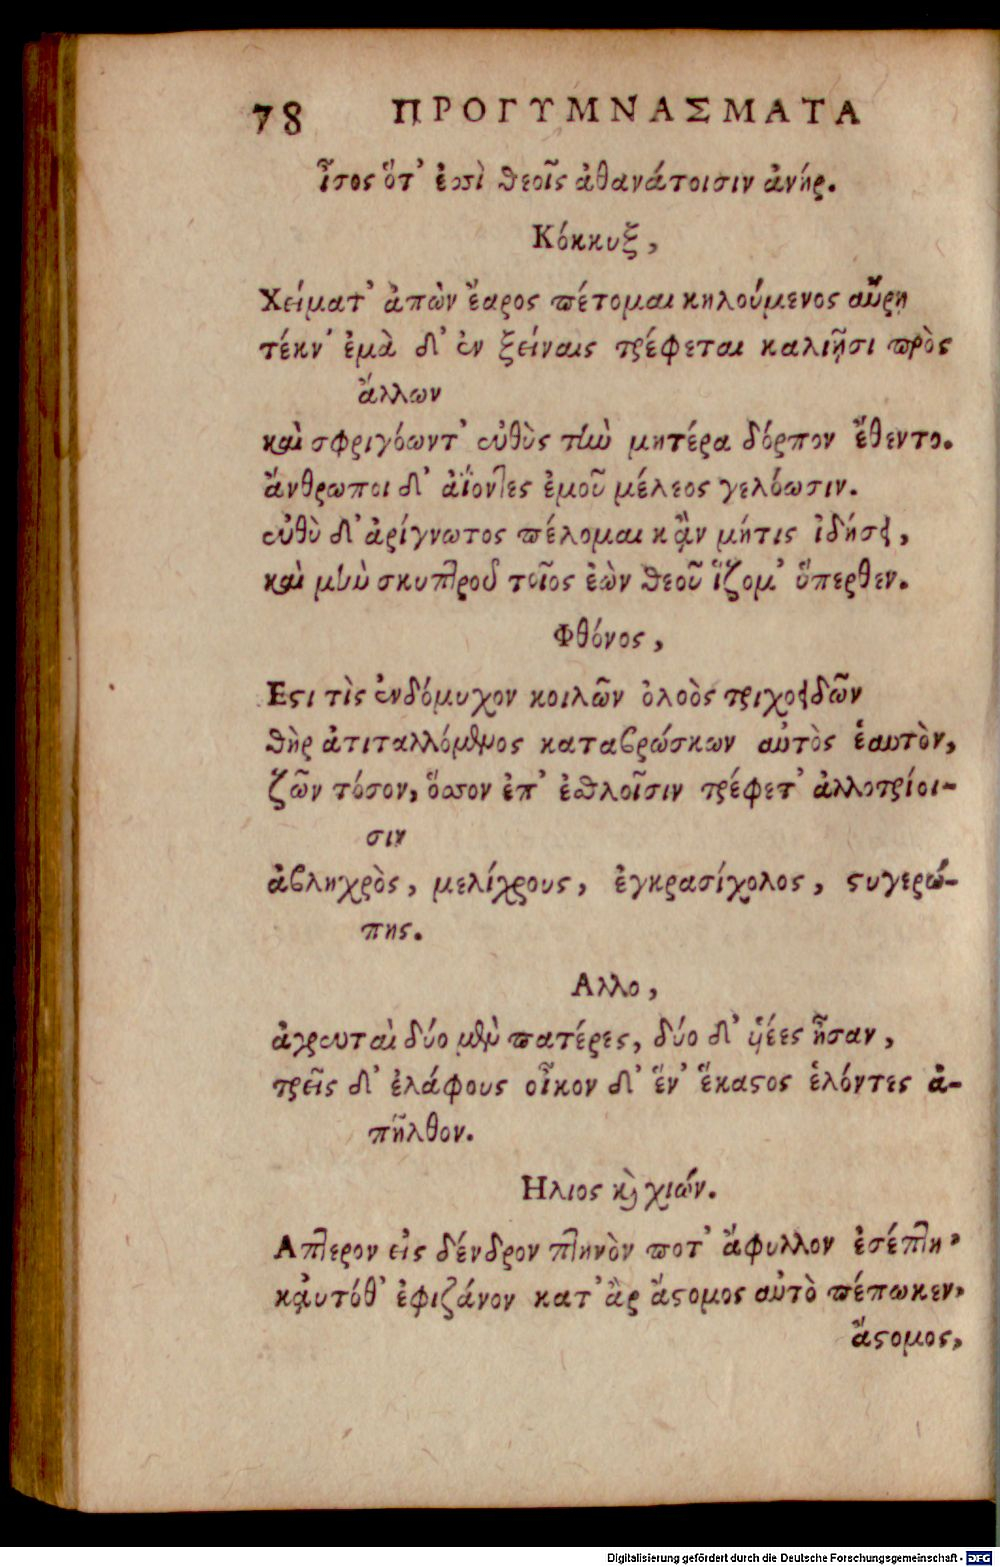 78 ΠΡΟΓΥΜΝΑΣΜΑΤΑ
ἶσος ὅτ' ἐπὶ θεοῖς ἀθανάτοισιν ἀνήρ.
Κόκκυξ,
Χείματ' ἀπὼν ἔαρος πέτομαι κηλούμενος αὔρῃ
τέκν' ἐμὰ δ' ἐν ξείναις τρέφεται καλιῇσι πρὸς
ἄλλων
καὶ σφριγόωντ' εὐθὺς τὴν μητέρα δόρπον ἔθεντο.
ἄνθρωποι δ' ἀΐοντες ἐμοῦ μέλεος γελόωσιν.
εὐθὺ δ' ἀρίγνωτος πέλομαι κᾂν μήτις ἰδήσει,
καὶ μὴν σκυπτροῦ τοῖος ἐὼν θεοῦ ἵζομ' ὕπερθεν.
Φθόνος,
Εστι τὶς ἐνδόμυχον κοιλῶν ὀλοὸς τριχοειδῶν
θὴρ ἀτιταλλόμενος καταβρώσκων αὐτὸς ἑαυτὸν,
ζῶν τόσον, ὅσον ἐπ' ἐθλοῖσιν τρέφετ' ἀλλοτρίοι-
σιν
ἀβληχρὸς, μελίχρους, ἐγκρασίχολος, στυγερώ-
πης.
Αλλο,
ἀγρευταὶ δύο μὲν πατέρες, δύο δ' ὑέες ἦσαν,
τρεῖς δ' ἐλάφους οἶκον δ' ἕν' ἕκαστος ἑλόντες ἀ-
πῆλθον.
Ηλιος καὶ χιών.
Απτερον εἰς δένδρον πτηνὸν ποτ' ἄφυλλον ἐσέπτη,
καὐτόθ' ἐφιζάνον κατ' ἂρ ἄστομος αὐτὸ πέπωκεν,
ἄστομος,
Digitalisierung gefördert durch die Deutsche Forschungsgemeinschaft - DFG